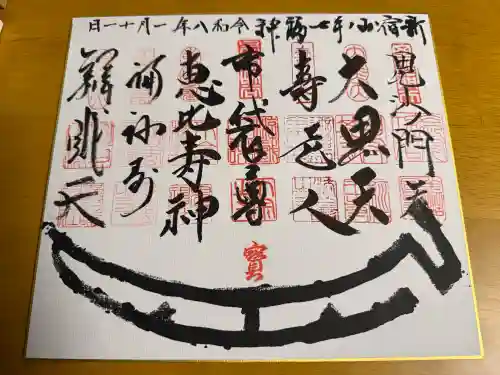 新宿山ノ手七福神 令和八年一月十一日
毘沙門天
大黒天
寿老人
布袋尊
恵比寿神
福禄寿
辨財天
寳